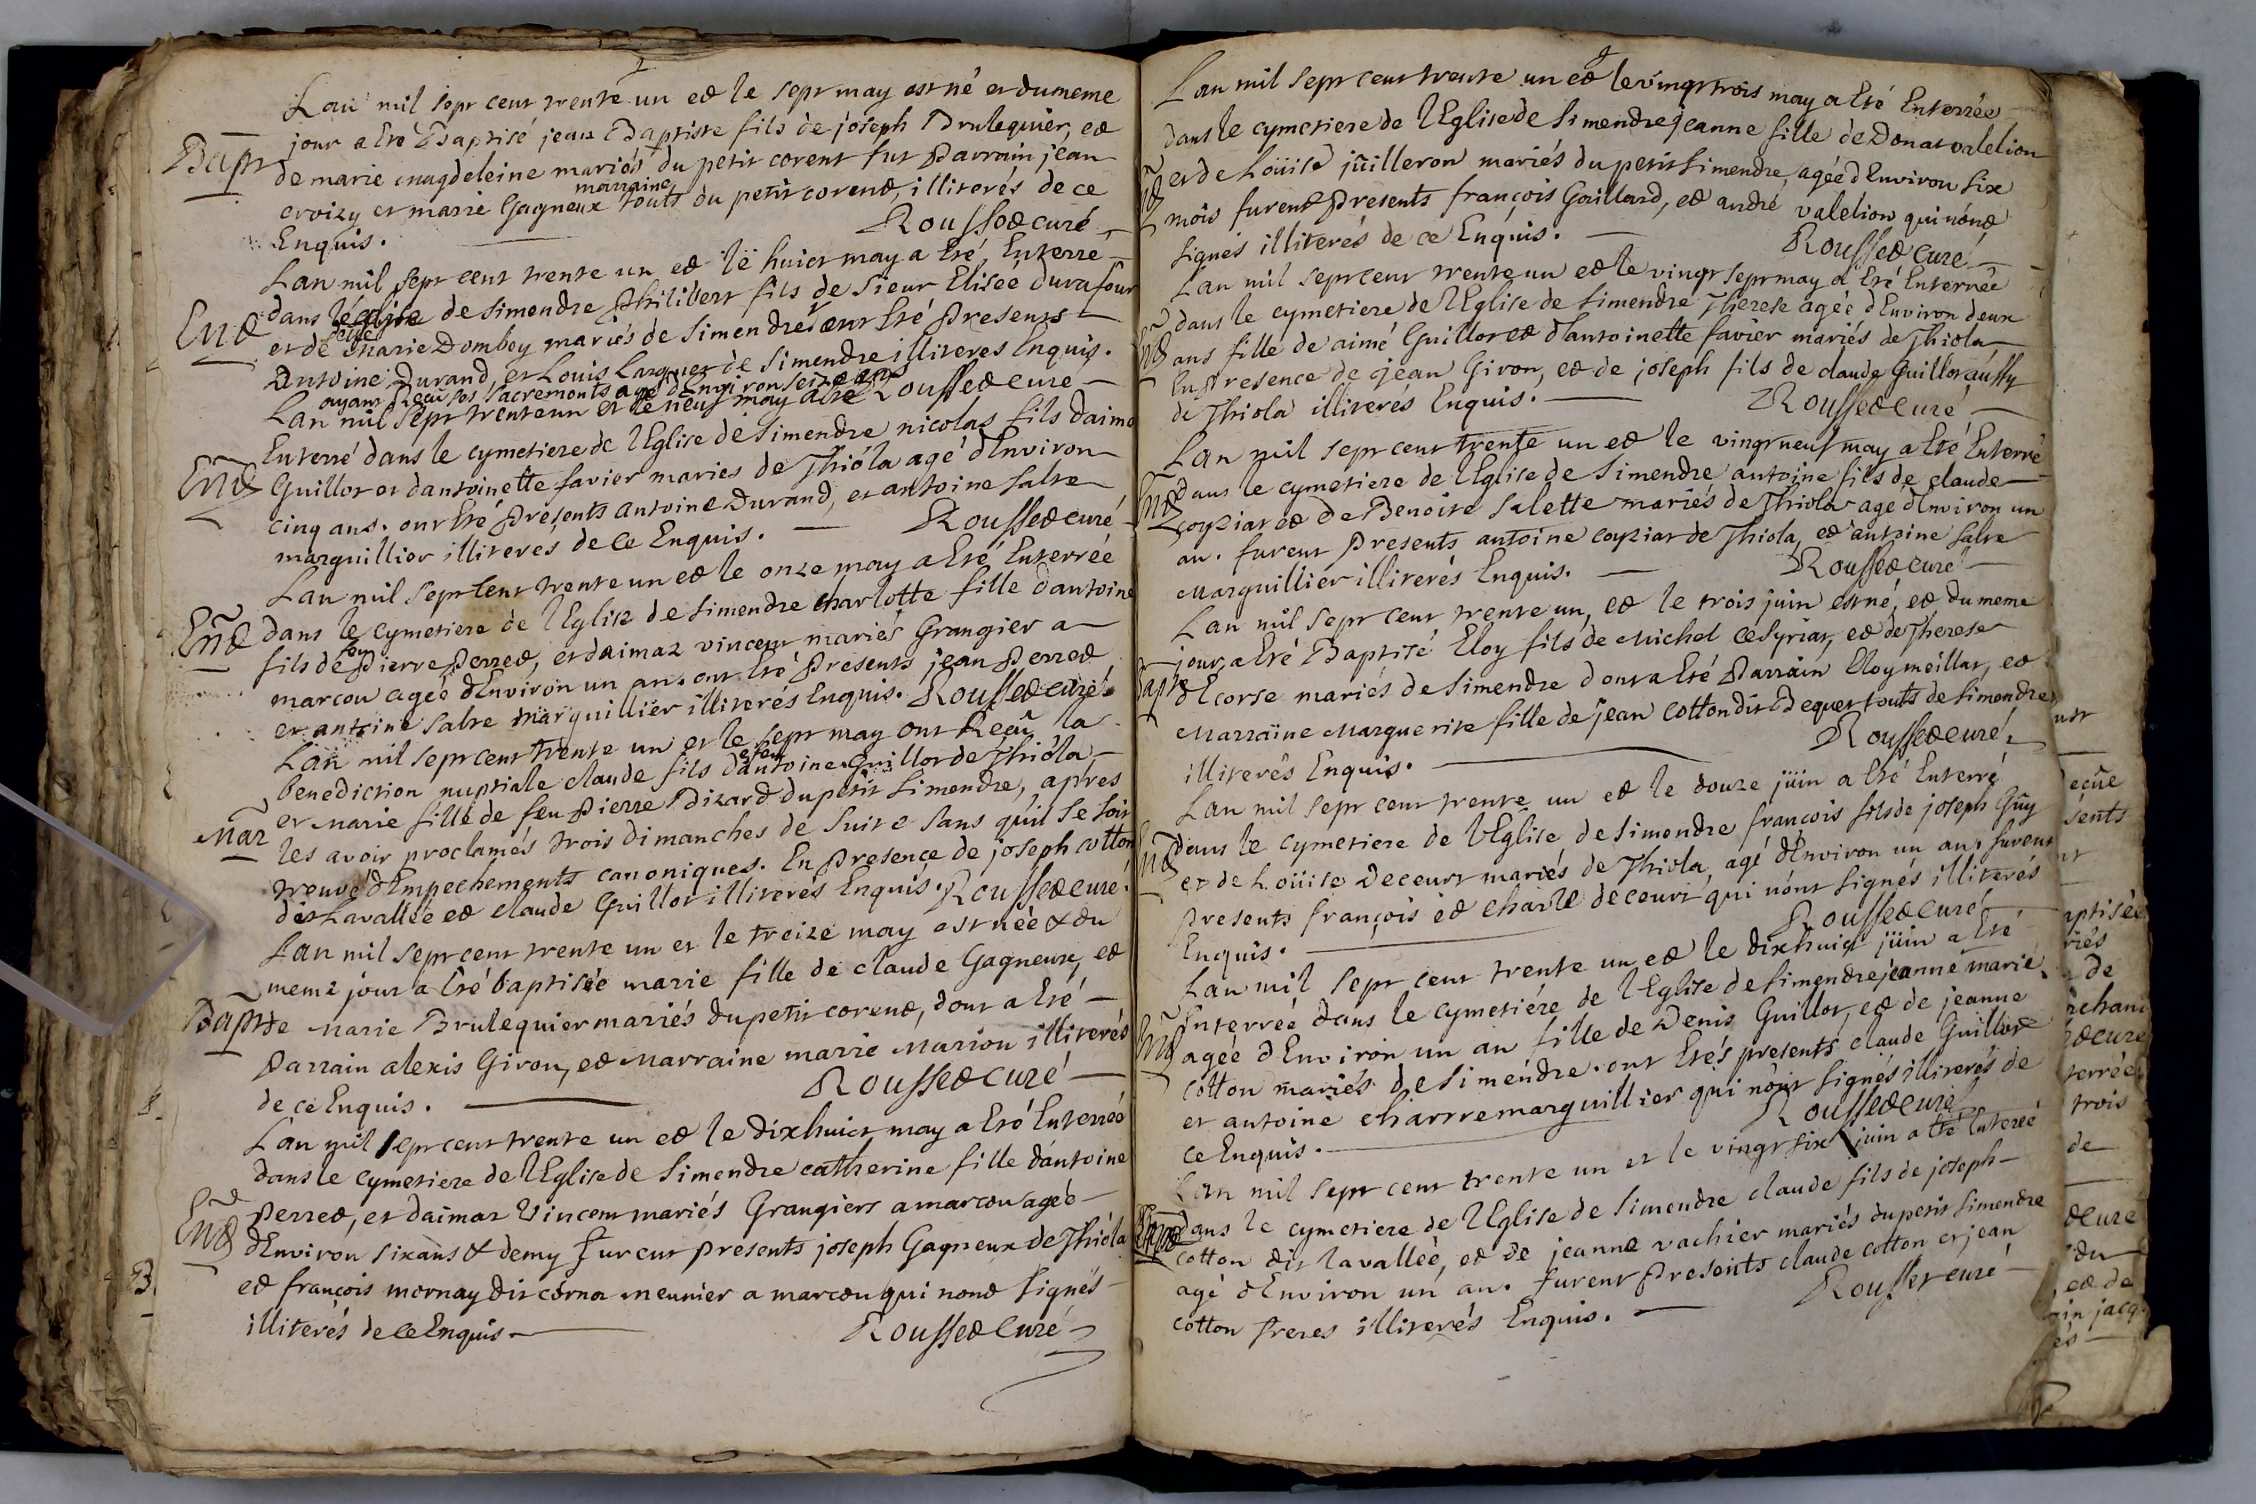 Lan mil sept cent trente un et le sept may est né et du meme
Bapt
jour a Eté Baptisé jean Baptiste fils de joseph Brulequier, et
de marie magdeleine mariés du petit corent fut Parrain jean
marraine
croizy et marie Gagneux touts du petit corent, illiterés de ce
Enquis. Rousset curé
Lan mil sept cent trente un et le huict may a Eté Enterré
Ent
dans léglise de simendre Philibert fils de Sieur Elisée durafour
et de Marie Dombey mariés de simendre ont Eté Presents
Antoine Durand, et Louis Larguet de simendre illiteres Enquis.
ayant Reçu ses sacrements agé d'Environ seize ans Rousset curé
Lan mil sept trente un et le neuf may a Eté
Enterré dans le cymetiere de lEglise de simendre nicolas fils daimé
Ent
Guillot et dantoinette favier maries de Thiola agé dEnviron
cinq ans. ont Eté Presents antoine Durand, et antoine salre
marguillier illiteres de ce Enquis. Rousset curé
Lan mil sept cent trente un et le onze may a Eté Enterrée
Ent
dans le cymetiere de lEglise de simendre charlotte fille dantoine
fils de feu Pierre Perret, et daimaz vincent mariés Grangier a
marcou agée dEnviron un an. ont Eté Presents jean Perret
et antoine salre marguillier illiterés Enquis. Rousset curé
Lan mil sept cent trente un et le sept may ont Reçu la
et feu
benediction nuptiale claude fils dantoine Guillot de Thiola
Mar
et Marie fille de feu Pierre Dizard du petit simendre, apres
les avoir proclamés trois dimanches de suite sans quil se soit
treuvé dEmpechements canoniques. En Presence de joseph cotton
dit Lavallée et claude Guillot illiterés Enquis. Rousset curé.
Lan mil sept cent trente un et le treize may est née & du
meme jour a Eté baptisée marie fille de claude Gagneux, et
Bapt
de Marie Brulequier mariés du petit corent, dont a Eté
Parrain alexis Giron, et Marraine marie Marion illiterés
de ce Enquis. Rousset curé
Lan mil sept cent trente un et le dixhuict may a Eté Enterrée
dans le cymetiere de lEglise de simendre catherine fille dantoine
Ent
Perret, et daimaz Vincent mariés Grangiers a marcou agée
dEnviron sixans & demy furent presents joseph Gagneux de Thiola
et françois mornay dit corna meunier a marcou qui nont signés
illiterés de ce Enquis Rousset Curé
Lan mil sept cent trente un et le vingt trois may a Eté Enterrée
dans le cymetiere de lEglise de simendre jeanne fille de Donat valelion
Ent
et de Loüise jüilleron mariés du petit simendre, agée dEnviron six
mois furent Presents françois Gaillard, et andré valelion qui nont
signés illiterés de ce Enquis. Rousset Curé
Lan mil sept cent trente un et le vingt sept may a Eté Enterrée
dans le cymetiere de lEglise de simendre Therese agée dEnviron deux
Ent
ans fille de aimé Guillot et dantoinette favier mariés de Thiola
En Presence de jean Giron, et de joseph fils de claude Guillot aussy
de Thiola illiterés Enquis. Rousset Curé
Lan mil sept cent trente un et le vingt neuf may a Eté Enterré
Ent
dans le cymetiere de lEglise de simendre antoine fils de claude
coyziat et de Benoite salette mariés de Thiola agé dEnviron un
an. furent Presents antoine coyziat de Thiola, et antoine salre
Marguillier illiterés Enquis. Rousset curé
Lan mil sept cent trente un, et le trois juin est né, et du meme
jour a Eté Baptisé Eloy fils de Michel cesyriat, et de Therese
Bapt
dEcorse mariés de simendre dont a Eté Parrain Eloy meillat, et
Marraine Marguerite fille de jean cotton dit Dequet touts de simendre
illiterés Enquis. Rousset curé
Lan mil sept cent trente un et le douze jüin a Eté Enterré
Ent
dans le cymetiere de lEglise de simendre françois fils de joseph Guy
et de Loüise Decourt mariés de Thiola, agé dEnviron un an. furent
Presents françois et charle decourt qui nont signés illiterés
Enquis. Rousset curé
Lan mil sept cent trente un et le dixhuict jüin a Eté
Enterrée dans le cymetiére de lEglise de simendre jeanne marie
Ent
agée dEnviron un an fille de Denis Guillot, et de jeanne
cotton mariés de simendre. ont Etés presents claude Guillot
et antoine charre marguillier qui nont signés illiterés de
ce Enquis. Rousset curé
Lan mil sept cent trente un et le vingt six juin a Eté Enterré
Ent
dans le cymetiere de lEglise de simendre claude fils de joseph
cotton dit lavallée, et de jeanne vachier mariés du petit simendre
agé dEnviron un an. furent Presents claude cotton et jean
cotton freres illiterés Enquis. Rousset curé